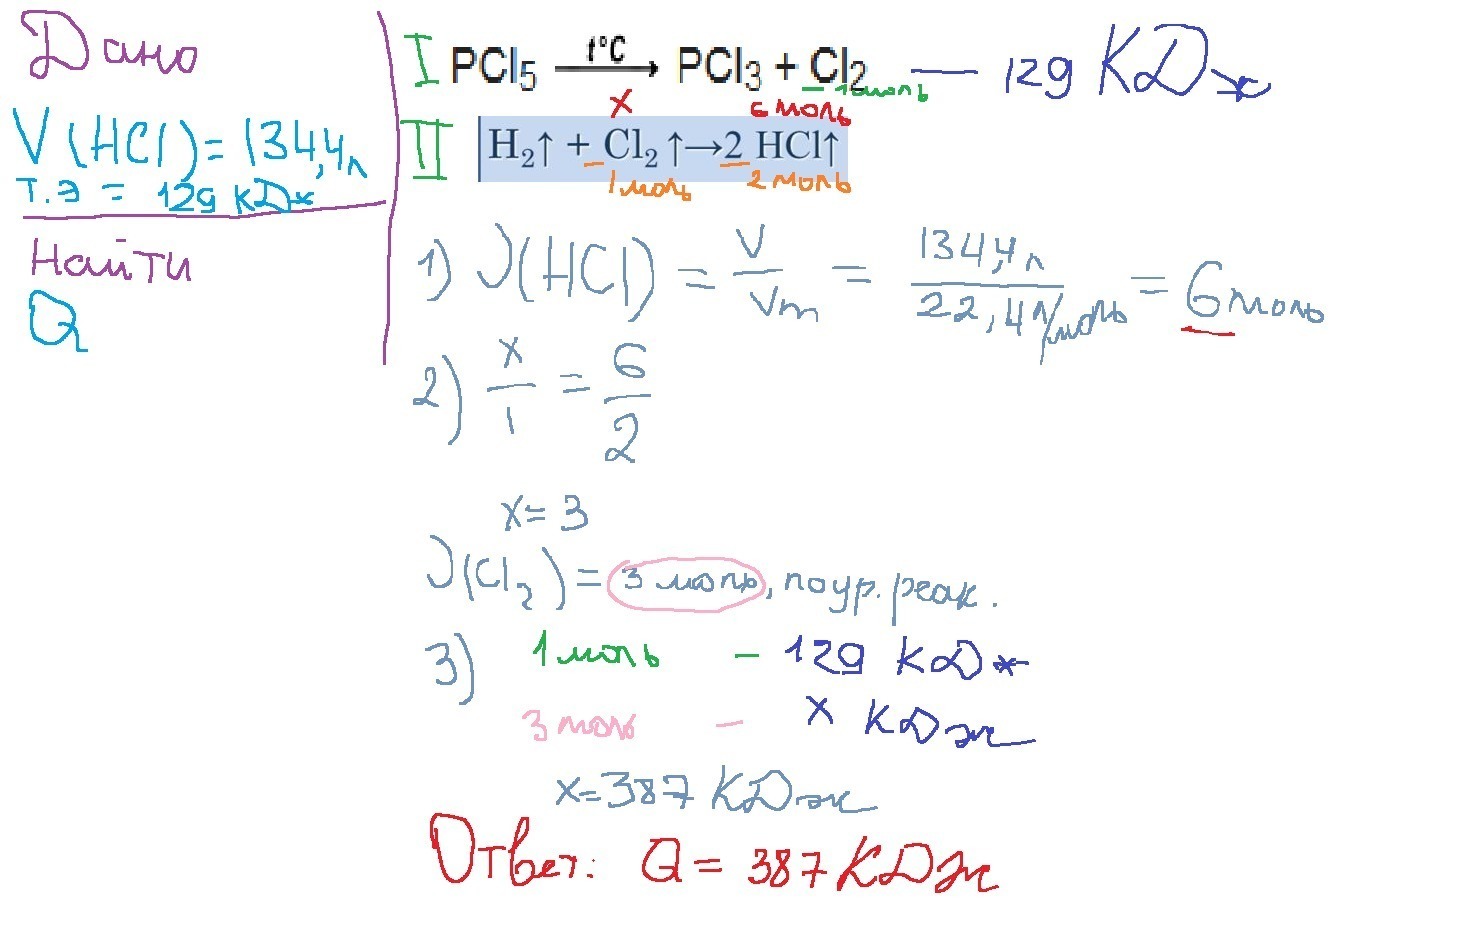 Дано
V(HCl) = 134,4 л
т.э = 129 кДж
Найти
Q
I PCl₅ —t°C→ PCl₃ + Cl₂ — 129 КДж
1 моль
x 6 моль
II H₂↑ + Cl₂↑→2 HCl↑
1 моль 2 моль
1) ν(HCl) = V/Vm = 134,4 л/22,4 л/моль = 6 моль
2) x/1 = 6/2
x = 3
ν(Cl₂) = 3 моль, по ур. реак.
3) 1 моль – 129 кДж
3 моль – x кДж
x = 387 КДж
Ответ: Q = 387 КДж